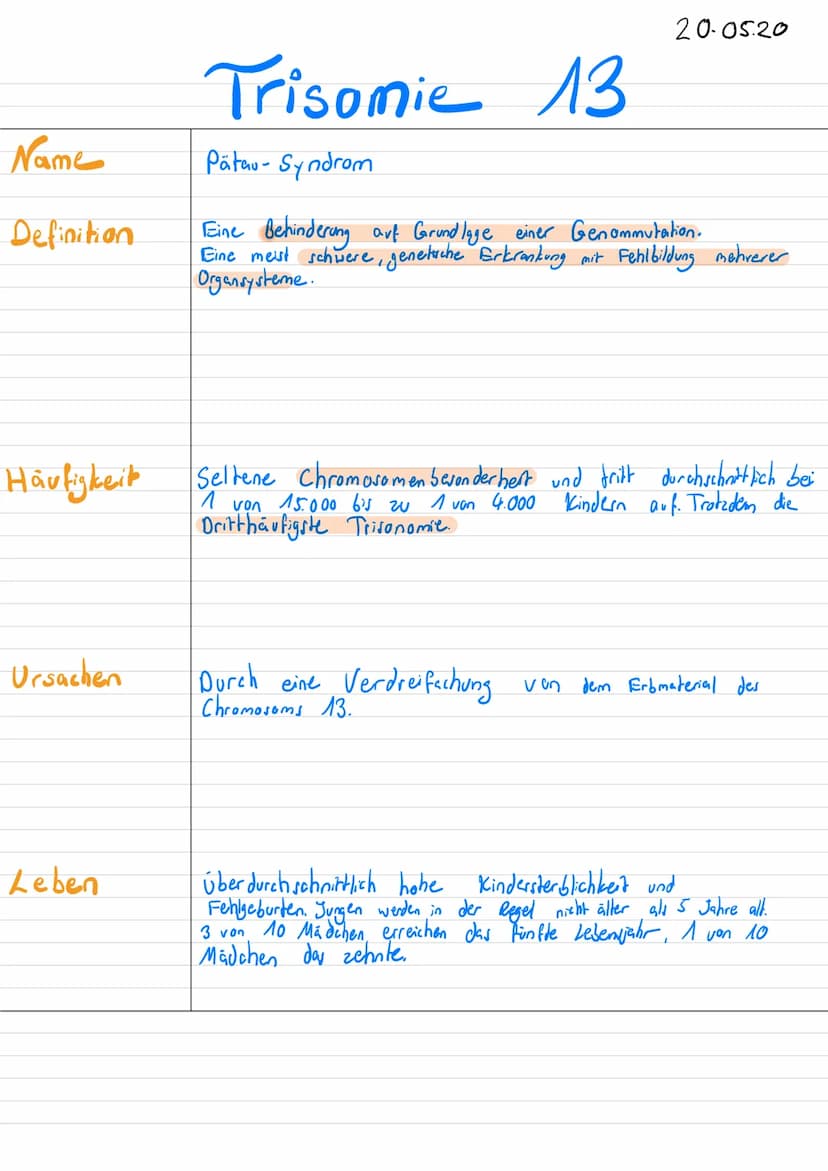 20.05.20
Trisomie 13
Name
Pätau-Syndrom
Definition
Eine Behinderung auf Grundlage einer Genommutation.
Eine meist schwere, genetische Erkrankung mit Fehlbildung mehrerer
Organsysteme.
Häufigkeit
Seltene Chromosomenbesonderheit und tritt durchschnittlich bei
1 von 15.000 bis zu 1 von 4.000 Kindern auf. Trotzdem die
Dritthäufigste Trisonomie.
Ursachen
Durch eine Verdreifachung von dem Erbmaterial des
Chromosoms 13.
Leben
Überdurchschnittlich hohe Kindersterblichkeit und
Fehlgeburten. Jungen werden in der Regel nicht älter als 5 Jahre alt.
3 von 10 Mädchen erreichen das fünfte Lebensjahr, 1 von 10
Mädchen das zehnte.